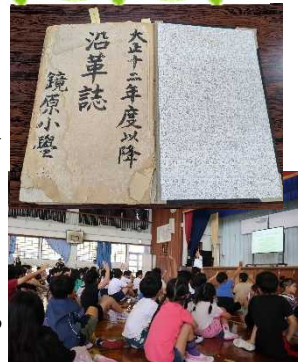 大正十二年度以降
沿革誌
鏡原小學